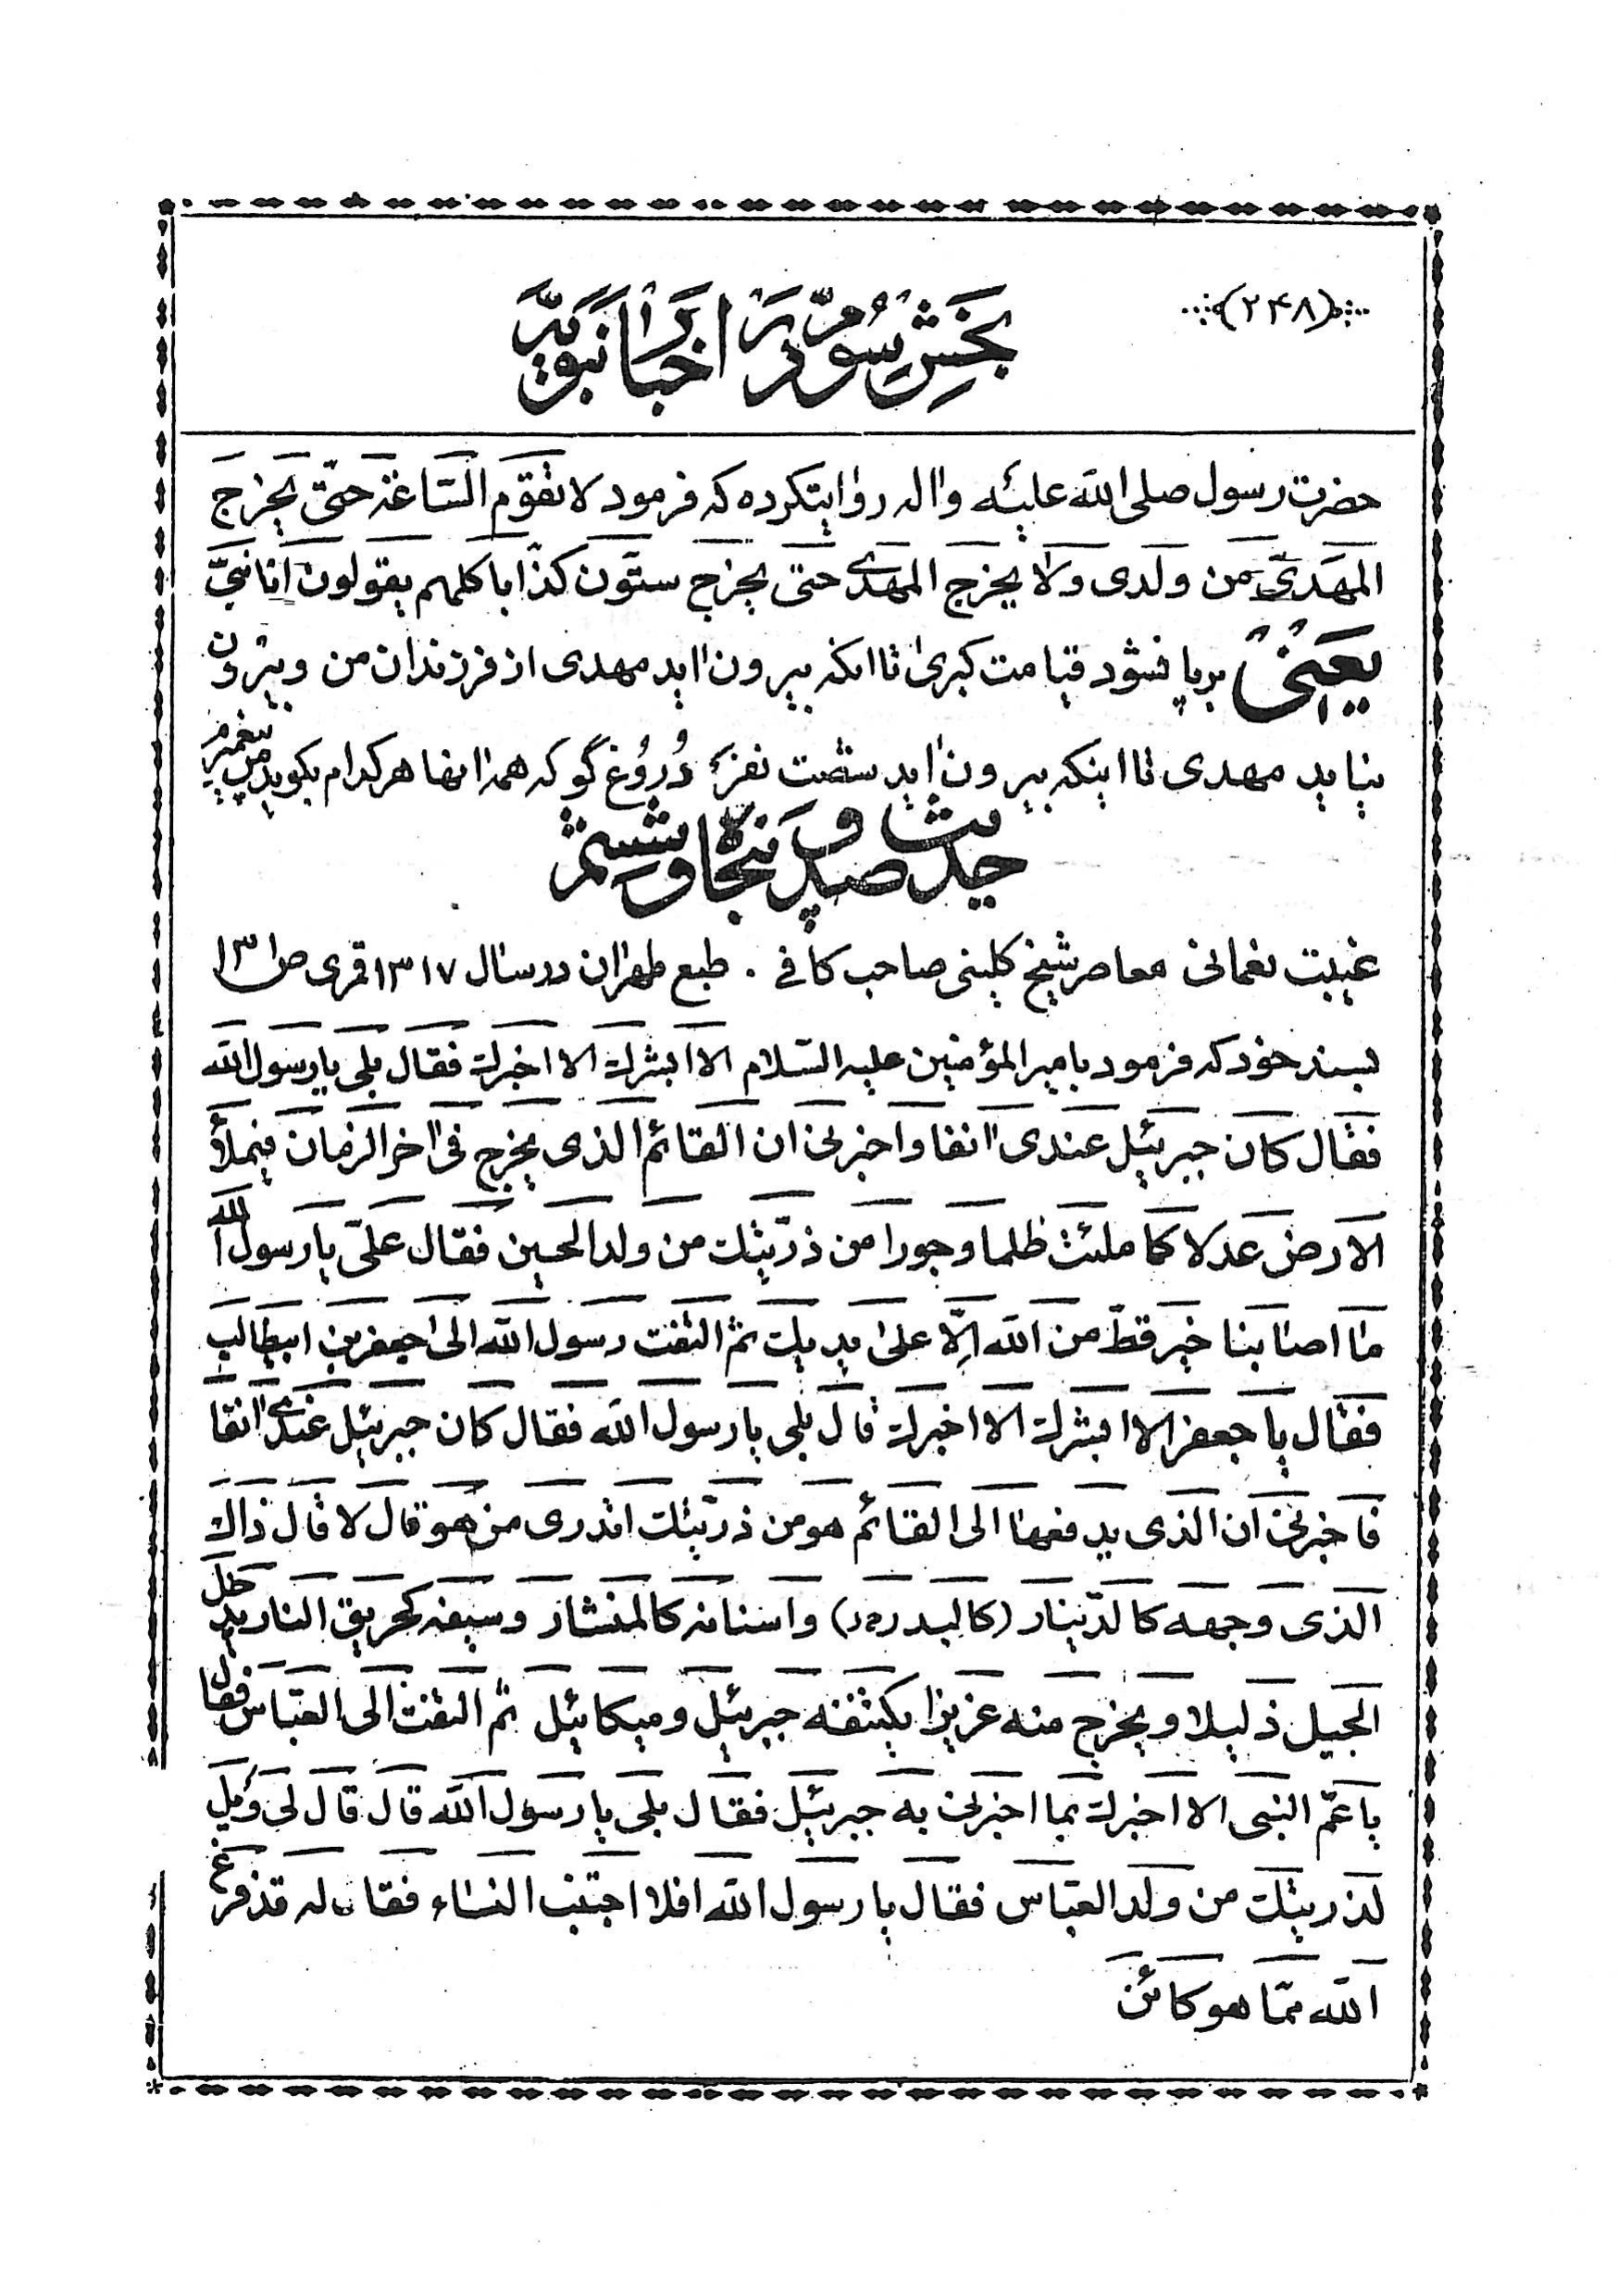 (۲۴۸)
بخش سوم در اخبار نبویه
حضرت رسول صلی الله علیه واله روایتکرده که فرمود لا تقوم الساعة حتی یخرج
المهدی من ولدی ولا یخرج المهدی حتی یخرج ستون کذابا کلهم یقولون انا نبی
یعنی برپا نشود قیامت کبری تا انکه بیرون اید مهدی از فرزندان من و بیرون
نیاید مهدی تا اینکه بیرون اید شصت نفر دروغ گو که همه انها هر کدام بگوید من پیغمبرم
حدیث صد و پنجاه و ششم
غیبت نعمانی معاصر شیخ کلینی صاحب کافی . طبع طهران در سال ۱۳۱۷ قمری ص ۱۳۱
بسند خود که فرمود بامیر المؤمنین علیه السلام الا ابشرك الا اخبرك فقال بلی یا رسول الله
فقال کان جبرئیل عندی انفا واخبرنی ان القائم الذی یخرج فی اخر الزمان فیملأ
الارض عدلا کما ملئت ظلما وجورا من ذریتك من ولد الحسین فقال علی یا رسول الله
ما اصابنا خیر قط من الله الا علی یدیك ثم التفت رسول الله الی جعفر بن ابیطالب
فقال یا جعفر الا ابشرك الا اخبرك قال بلی یا رسول الله فقال کان جبرئیل عندی انفا
فاخبرنی ان الذی یدفعها الی القائم هو من ذریتك اتدری من هو قال لا قال ذاك
الذی وجهه کالدینار (کالبدر ‌) واسنانه کالمنشار وسیفه کحریق النار یدخل
الجبل ذلیلا ویخرج منه عزیزا یکتنفه جبرئیل ومیکائیل ثم التفت الی العباس فقال
یا عم النبی الا اخبرك بما اخبرنی به جبرئیل فقال بلی یا رسول الله قال قال لی ویل
لذریتك من ولد العباس فقال یا رسول الله افلا اجتنب النساء فقال له قد فرغ
الله مما هو کائن